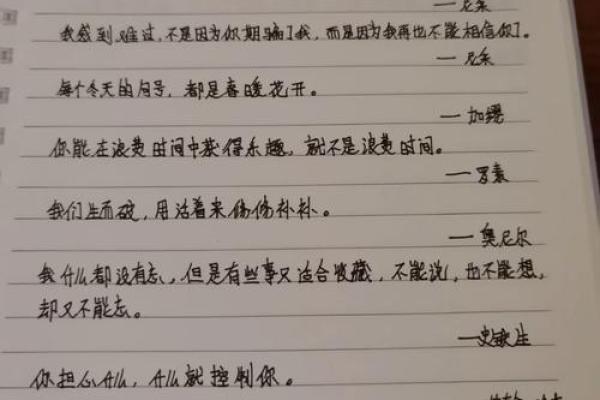 —尼采
我感到难过,不是因为你期骗了我,而是因为我再也不能相信你了。
—尼采
每个冬天的句号,都是春暖花开。
—加缪
你能在浪费时间中获得乐趣,就不是浪费时间。
—罗素
我们生而破,用活着来修修补补。
—奥尼尔
我什么都没有忘,但是有些事只适合收藏,不能说,也不能想,
却又不能忘。
—史铁生
你担心什么,什么就控制你。